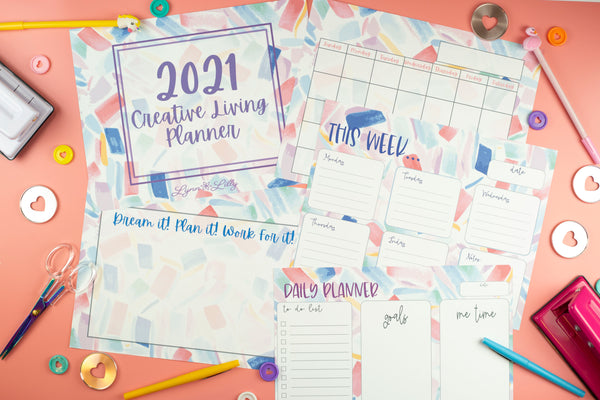 2021
Creative Living
Planner
Lynn & Lilly
Dream it! Plan it! Work For it!
Sunday Monday Tuesday Wednesday Thursday Friday Saturday
THIS WEEK
date
Monday
Tuesday
Wednesday
Thursday
Friday
Notes
DAILY PLANNER
to do list
goals
me time